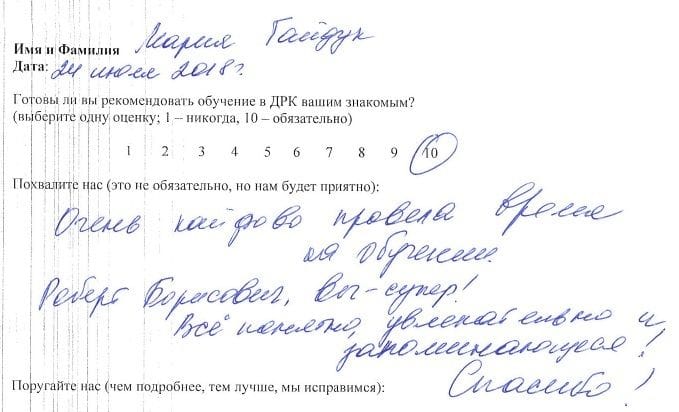 Имя и Фамилия Мария Гайдук
Дата: 24 июля 2018г.
Готовы ли вы рекомендовать обучение в ДРК вашим знакомым?
(выберите одну оценку; 1 – никогда, 10 – обязательно)
1 2 3 4 5 6 7 8 9 10
Похвалите нас (это не обязательно, но нам будет приятно):
Очень кайфово провела время
на обучении.
Роберт Борисович, Вы-супер!
Всё понятно, увлекательно и
запоминающееся!
Поругайте нас (чем подробнее, тем лучше, мы исправимся): Спасибо!